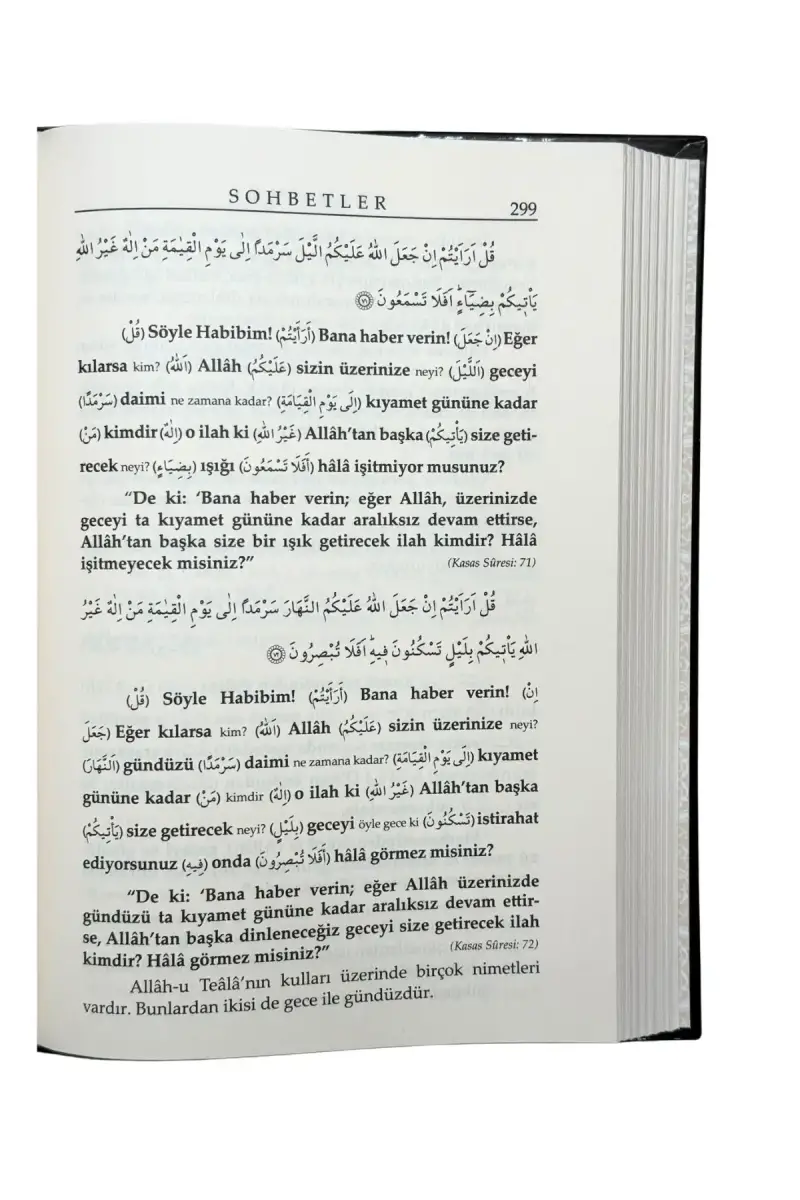 SOHBETLER
299
قُلْ اَرَاَيْتُمْ اِنْ جَعَلَ اللّٰهُ عَلَيْكُمُ الَّيْلَ سَرْمَدًا اِلٰى يَوْمِ الْقِيٰمَةِ مَنْ اِلٰهٌ غَيْرُ اللّٰهِ
يَاْت۪يكُمْ بِضِيَٓاءٍۜ اَفَلَا تَسْمَعُونَ ﴿٧١﴾
(قُلْ) Söyle Habibim! (أَرَأَيْتُمْ) Bana haber verin! (إِنْ جَعَلَ) Eğer
kılarsa kim? (اَللّٰهُ) Allâh (عَلَيْكُمُ) sizin üzerinize neyi? (اَللَّيْلَ) geceyi
(سَرْمَدًا) daimi ne zamana kadar? (إِلَى يَوْمِ الْقِيَامَةِ) kıyamet gününe kadar
(مَنْ) kimdir (إِلٰهٌ) o ilah ki (غَيْرُ اللّٰهِ) Allâh'tan başka (يَأْتِيكُمْ) size geti-
recek neyi? (بِضِيَاءٍ) ışığı (أَفَلَا تَسْمَعُونَ) hâlâ işitmiyor musunuz?
"De ki: 'Bana haber verin; eğer Allâh, üzerinizde
geceyi ta kıyamet gününe kadar aralıksız devam ettirse,
Allâh'tan başka size bir ışık getirecek ilah kimdir? Hâlâ
işitmeyecek misiniz?" (Kasas Sûresi: 71)
قُلْ اَرَاَيْتُمْ اِنْ جَعَلَ اللّٰهُ عَلَيْكُمُ النَّهَارَ سَرْمَدًا اِلٰى يَوْمِ الْقِيٰمَةِ مَنْ اِلٰهٌ غَيْرُ
اللّٰهِ يَاْت۪يكُمْ بِلَيْلٍ تَسْكُنُونَ ف۪يهِۜ اَفَلَا تُبْصِرُونَ ﴿٧٢﴾
(قُلْ) Söyle Habibim! (أَرَأَيْتُمْ) Bana haber verin! (إِنْ
جَعَلَ) Eğer kılarsa kim? (اَللّٰهُ) Allâh (عَلَيْكُمُ) sizin üzerinize neyi?
(اَلنَّهَارَ) gündüzü (سَرْمَدًا) daimi ne zamana kadar? (إِلَى يَوْمِ الْقِيَامَةِ) kıyamet
gününe kadar (مَنْ) kimdir (إِلٰهٌ) o ilah ki (غَيْرُ اللّٰهِ) Allâh'tan başka
(يَأْتِيكُمْ) size getirecek neyi? (بِلَيْلٍ) geceyi öyle gece ki (تَسْكُنُونَ) istirahat
ediyorsunuz (فِيهِ) onda (أَفَلَا تُبْصِرُونَ) hâlâ görmez misiniz?
"De ki: 'Bana haber verin; eğer Allâh üzerinizde
gündüzü ta kıyamet gününe kadar aralıksız devam ettir-
se, Allâh'tan başka dinleneceğiz geceyi size getirecek ilah
kimdir? Hâlâ görmez misiniz?" (Kasas Sûresi: 72)
Allâh-u Teâlâ'nın kulları üzerinde birçok nimetleri
vardır. Bunlardan ikisi de gece ile gündüzdür.